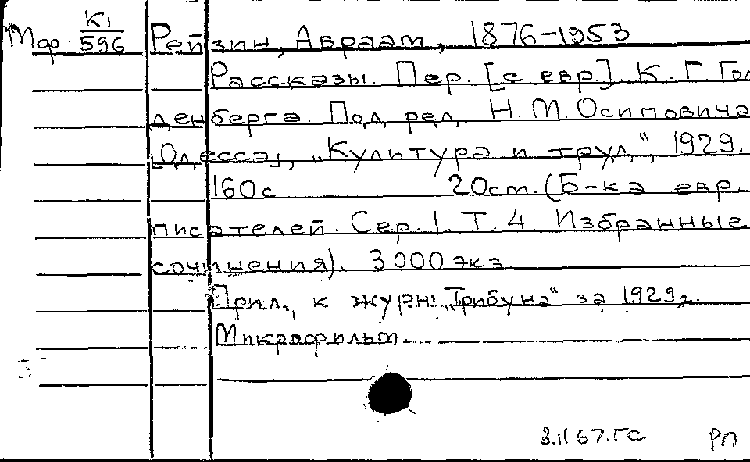 Мар К1/596 Рейзин, Авраам, 1876-1953
Рассказы. Пер. [с евр.] К. Г. Гол
денберга. Под ред. Н. М. Осиповича
[Одесса], „Культура и труд“, 1929.
160с 20см. (Б-ка евр.
писателей. Сер. I. Т. 4 Избранные
сочинения). 3000 экз
Прил. к журн. „Трибуна“ за 1929г.
Микрофильм.
РП